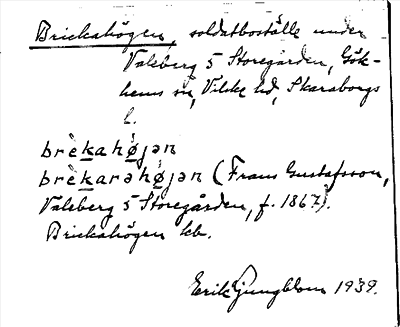 Brickahögen, soldatboställe under
Valeberg 5 Storegården, Gök-
hems sn, Vilske hd, Skaraborgs
l.
brèkahøjən
brèkarəhøjən (Frans Gustafsson,
Valeberg 5 Storegården, f. 1867).
Brickahögen kb.
Erik Ljungblom 1939.